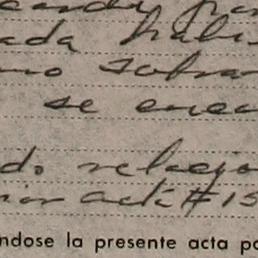 ada habi
no sobra
se encu
do relejo
rior acta # 15
ndose la presente acta po